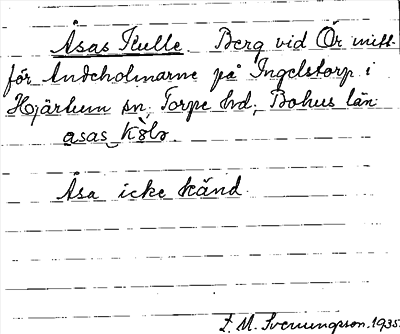 Åsas Kulle. Berg vid Ör mitt-
för Andeholmarne på Ingelstorp i
Hjärtum sn, Torpe hd, Bohus län
Åsa icke känd.
L. M. Svenungsson. 1935